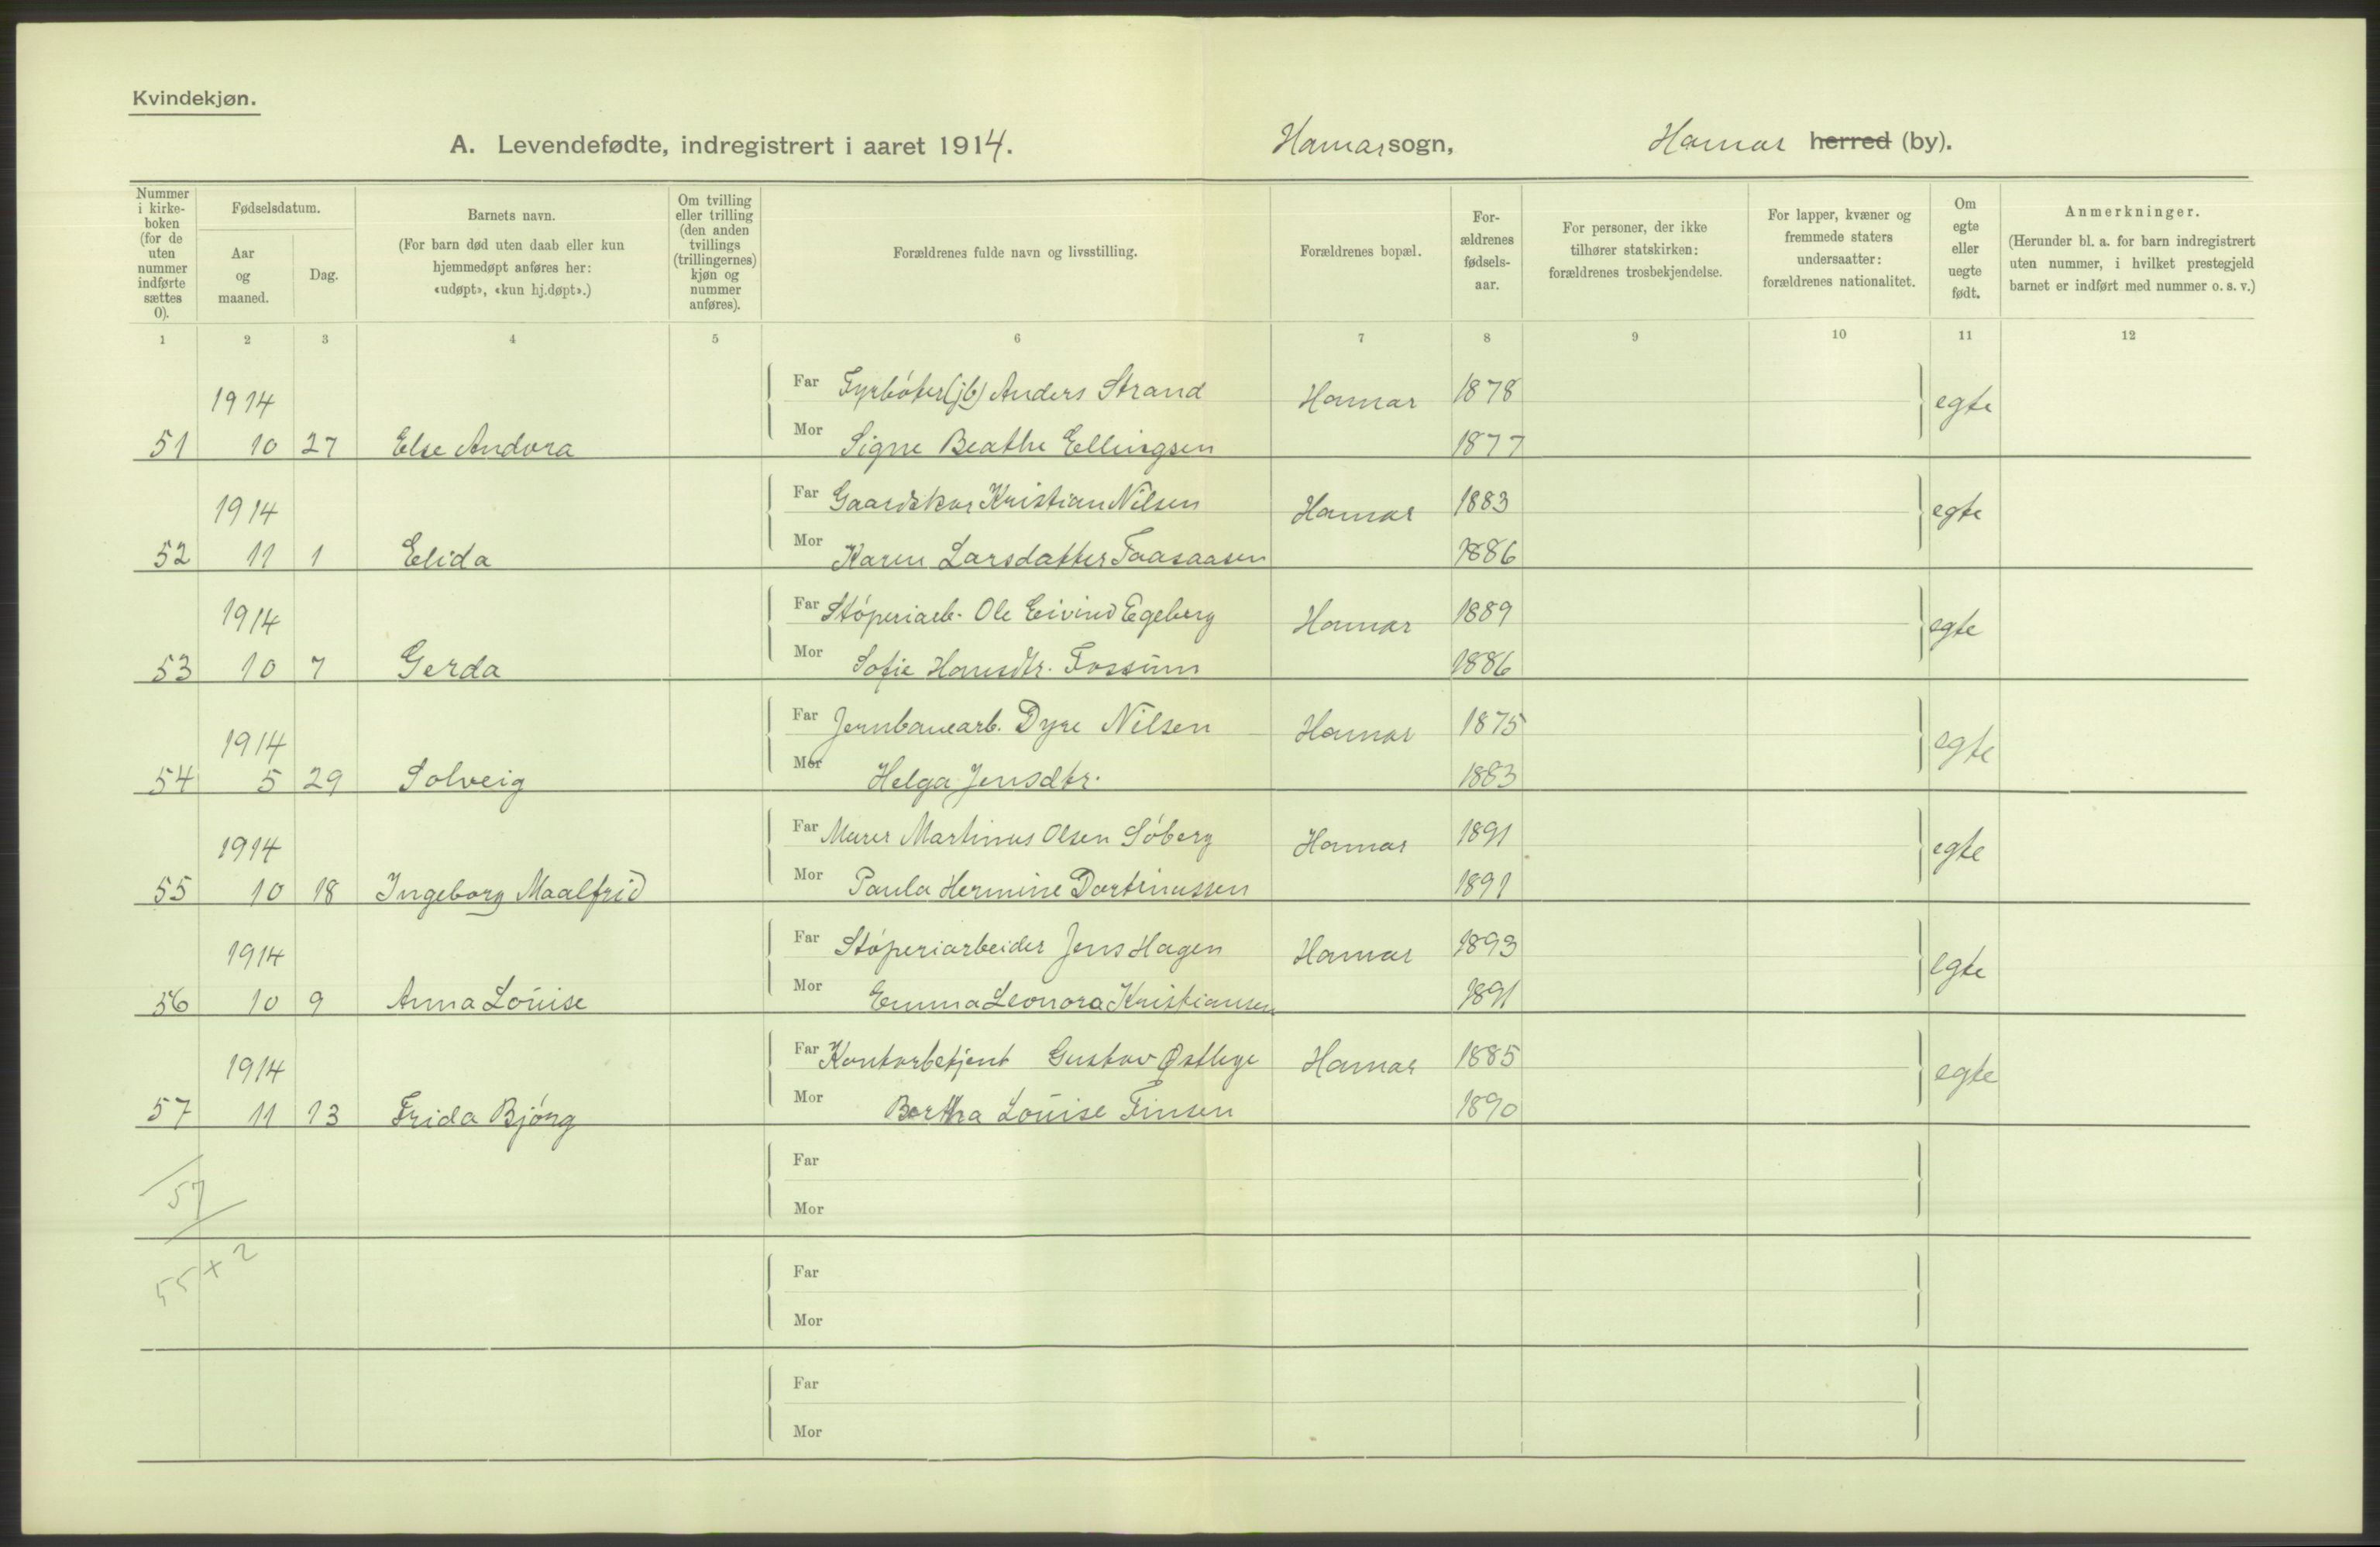 Kvindekjøn.
A. Levendefødte, indregistrert i aaret 1914. Hamar sogn, Hamar herred (by).
Nummer i kirkeboken (for de uten nummer indførte sættes 0).
Fødselsdatum.
Aar og maaned.
Dag.
Barnets navn.
(For barn død uten daab eller kun hjemmedøpt anføres her: «udøpt», «kun hj.døpt».)
Om tvilling eller trilling (den anden tvillings (trillingernes) kjøn og nummer anføres).
Forældrenes fulde navn og livsstilling.
Forældrenes bopæl.
Forældrenes fødselsaar.
For personer, der ikke tilhører statskirken: forældrenes trosbekjendelse.
For lapper, kvæner og fremmede staters undersaatter: forældrenes nationalitet.
Om egte eller uegte født.
Anmerkninger.
(Herunder bl. a. for barn indregistrert uten nummer, i hvilket prestegjeld barnet er indført med nummer o. s. v.)
1 2 3 4 5 6 7 8 9 10 11 12
1914 Far Fyrbóter (jb) Anders Strand Hamar 1878 egte
51 10 27 Else Andora Mor Signe Beathe Ellingsen 1877
1914 Far Gaardskar Kristian Nilsen Hamar 1883 egte
52 11 1 Elida Mor Karen Larsdatter Faasaasen 1886
1914 Far Stóperiarb. Ole Eivind Egeberg Hamar 1889 egte
53 10 7 Gerda Mor Sofie Hansdtr. Fossum 1886
1914 Far Jernbanearb. Dyre Nilsen Hamar 1875 egte
54 5 29 Solveig Mor Helga Jensdtr. 1883
1914 Far Murer Martinus Olsen Sóberg Hamar 1891 egte
55 10 18 Ingeborg Maalfrid Mor Paula Hermine 1891
1914 Far Stóperiarbeider Jens Hagen Hamar 1893 egte
56 10 9 Anna Louise Mor Emma Leonora Kristiansen 1891
1914 Far Kontorbetjent Gustav Østlye Hamar 1885 egte
57 11 13 Frida Bjórg Mor Bertha Louise Finsen 1890
57
Far
Mor
55 + 2
Far
Mor
Far
Mor